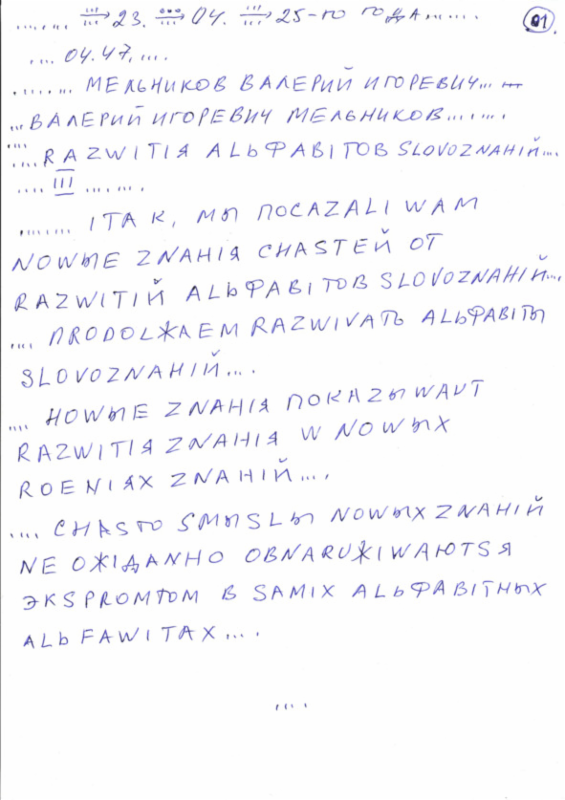 ....... ⇒ 23. ⇒ 04. ⇒ 25-го года....... 01.
... 04.47, ....
....... МЕЛЬНИКОВ ВАЛЕРИЙ ИГОРЕВИЧ...
...ВАЛЕРИЙ ИГОРЕВИЧ МЕЛЬНИКОВ.......
....RAZWITIЯ ALЬФАВITОВ SLOVOZNAНIЙ....
.... III .......
....... IТАК, МЫ ПОCAZALI WAM
NОWЫЕ ZNАНIЯ CHASTЕЙ ОТ
RAZWITIЙ ALЬФАВITОВ SLOVOZNAНIЙ....
.... ПRОDОLЖАЕМ RAZWIVATЬ ALЬФАВITЫ
SLOVOZNАНIЙ....
.... НОWЫЕ ZNАНIЯ ПОКАZЫWAUT
RAZWITIЯ ZNАНIЯ W NОWЫХ
ROENIЯХ ZNАНIЙ....
.... CHASTO SMЫSLЫ NОWЫХ ZNАНIЙ
NE ОЖIДАNНО OBNARUЖIWАЮТSЯ
ЭКSPROMTOM В SAMIX ALЬФАВITНЫХ
ALЬFAWITAX....
....